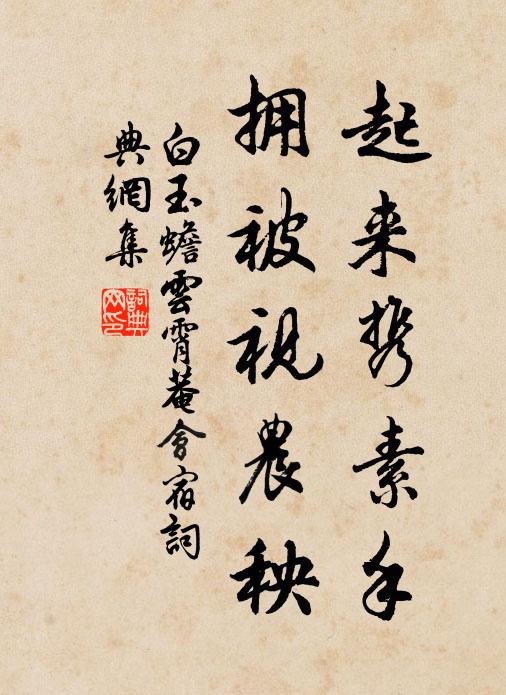 起来携素手
拥被视农秧
白玉蟾雲霄菴會宿詞
典網集
詞典网印